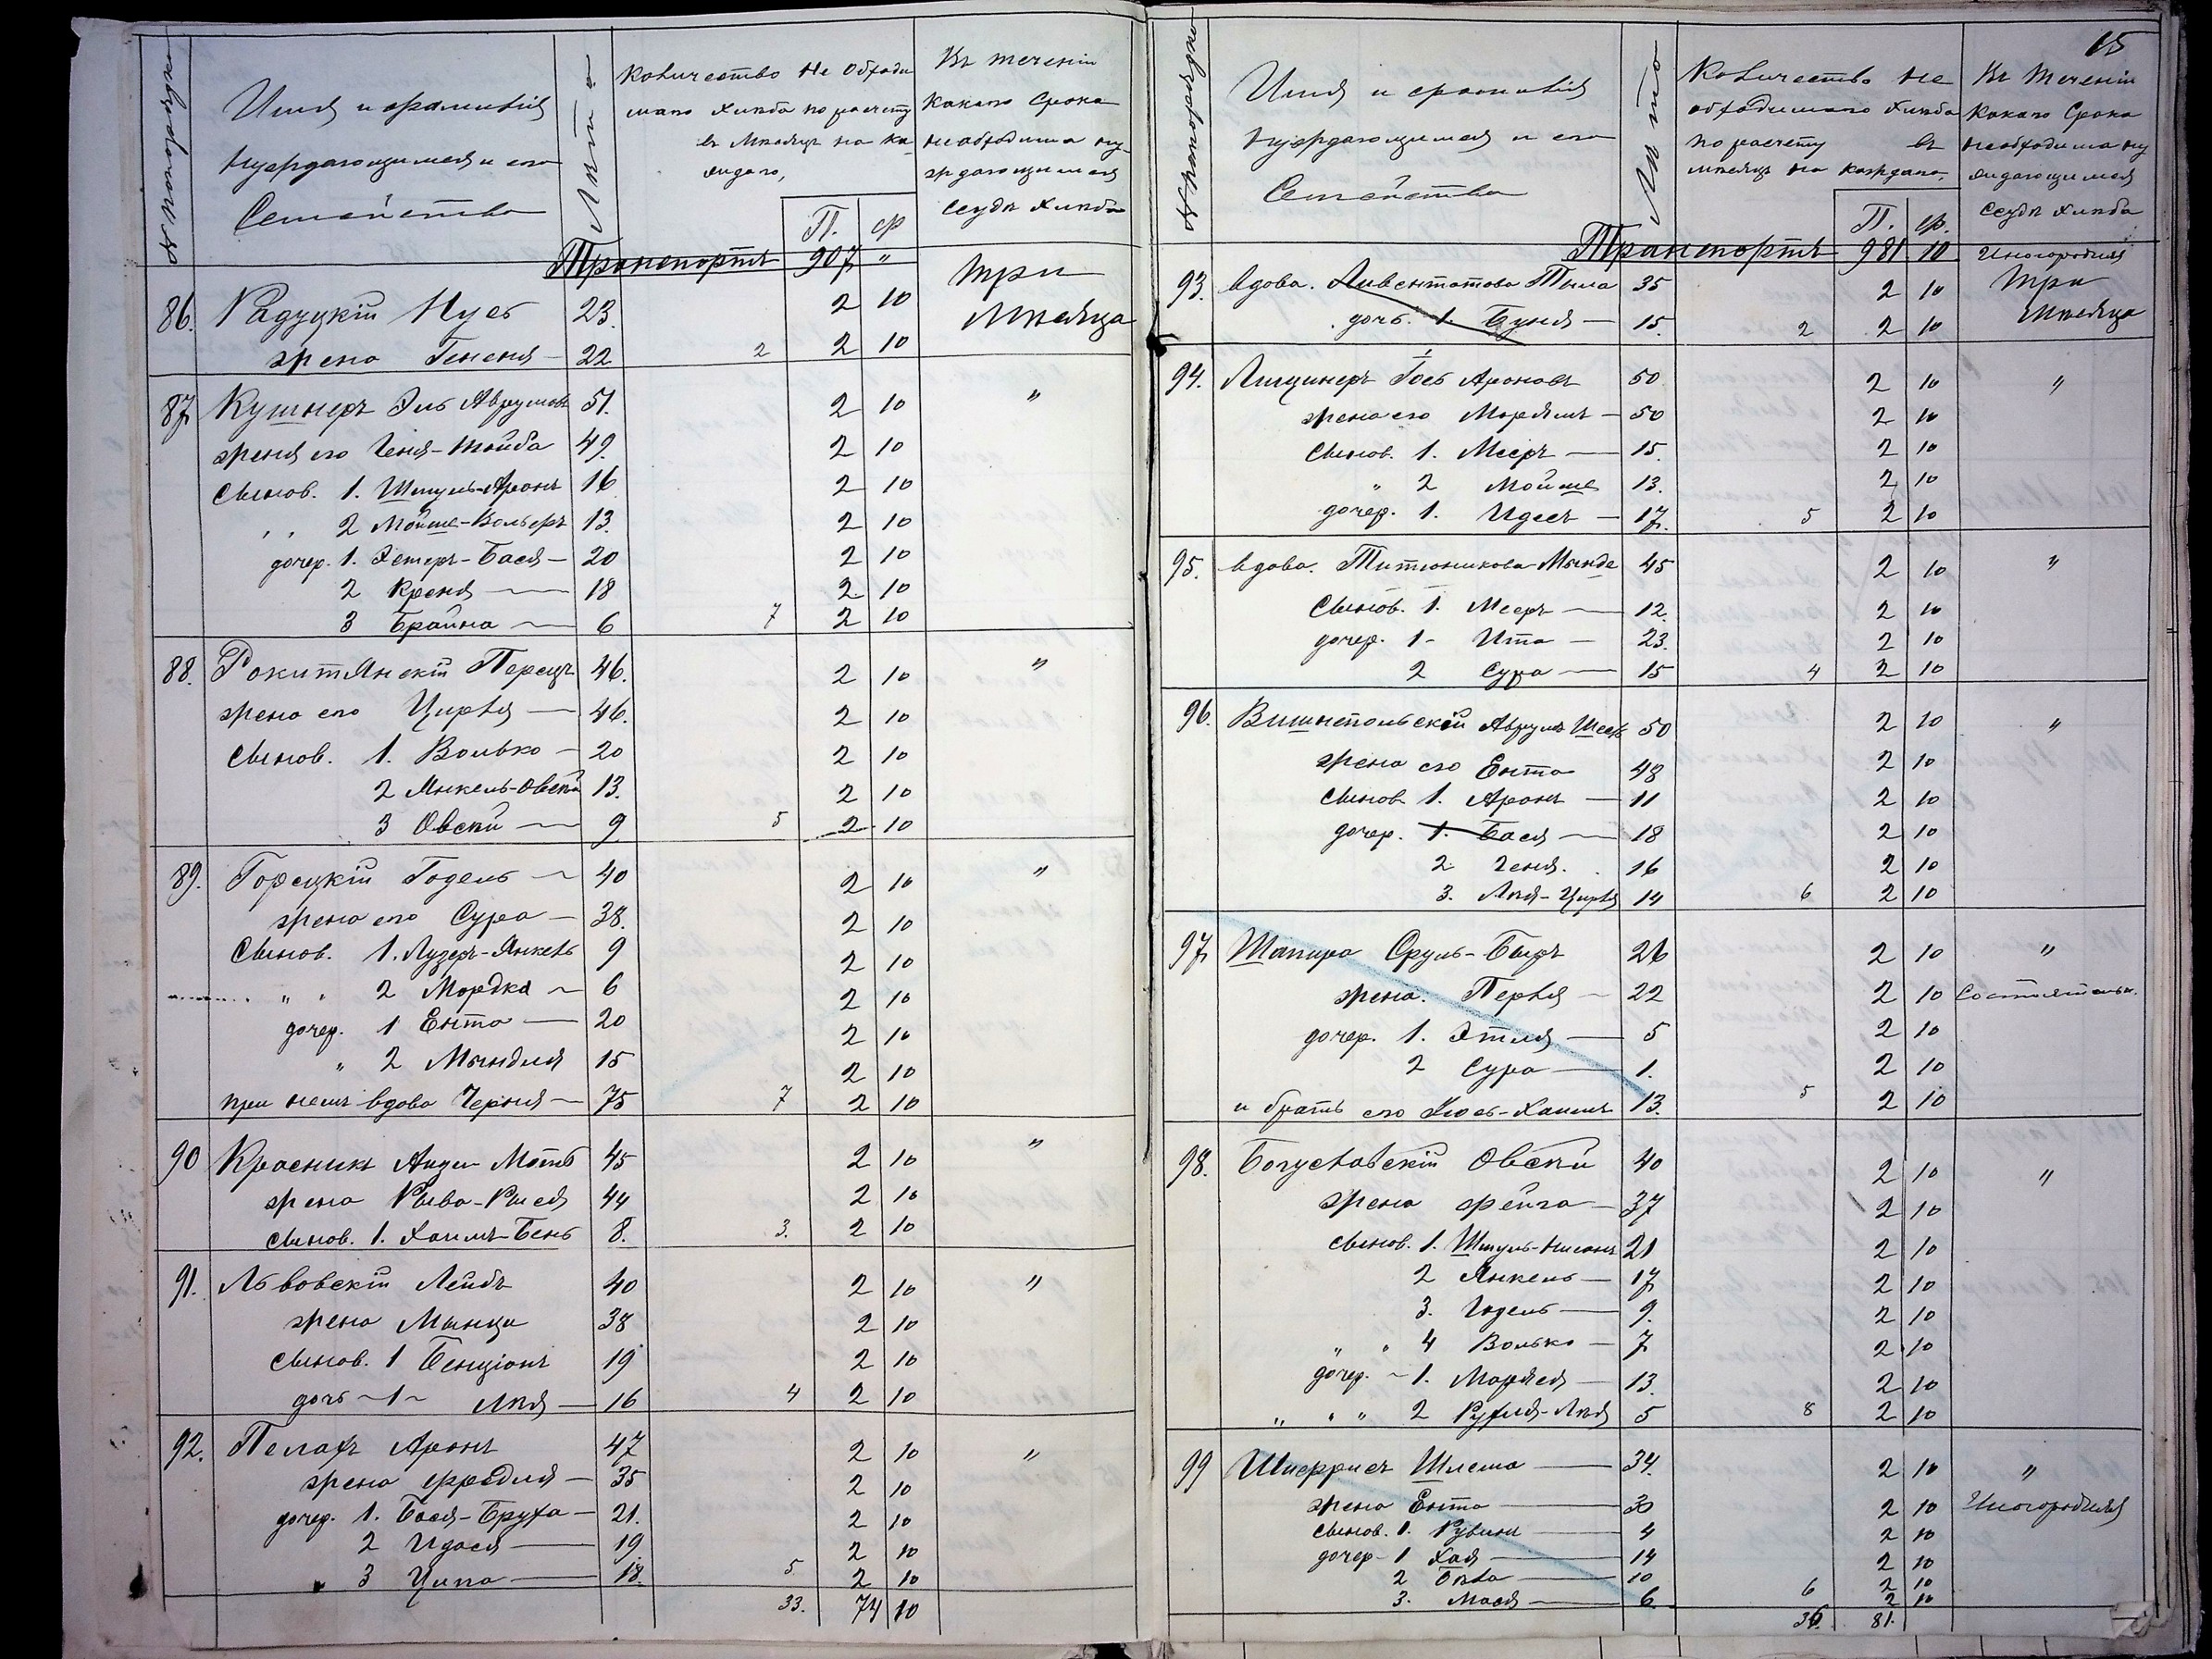 № по порядку
Имя и фамилія
нуждающимся и его
Семейства
Лѣта
Количество необходи
маго хлѣба по расчету
въ мѣсяцъ на ка-
ждаго,
П. ф
Въ теченіи
какого срока
необходима ну-
ждающимся
ссуда хлѣба
Транспортъ 907 "
86. Радуцкій Нусъ 23. 2 10 три
мѣсяца
жена Гененя 22 2 2 10
87 Кушнеръ Эль Аврумовъ 51. 2 10 "
жена его Геня-Тойба 49. 2 10
сынов. 1. Шмуль-Аронъ 16 2 10
" 2 Мойше-Вольфъ 13. 2 10
дочер. 1. Эстеръ-Бася 20 2 10
2 Креня 18 2 10
3 Брайна 6 7 2 10
88. Рокитянскій Перецъ 46. 2 10 "
жена его Цирля 46. 2 10
сынов. 1. Волько 20 2 10
2 Янкель-Овсѣй 13. 2 10
3 Овсѣй 9 5 2 10
89. Горецкій Годель 40 2 10 "
жена его Сура 38. 2 10
сынов. 1. Лузеръ-Янкель 9 2 10
" " 2 Мордка 6 2 10
дочер. 1 Ента 20 2 10
" 2 Мындля 15 2 10
при немъ вдова Черня 75 7 2 10
90 Красникъ Анци Моть 45 2 10 "
жена Рыва-Рыся 44 2 10
сынов. 1. Хаимъ-Бень 8. 3. 2 10
91. Львовскій Лейбъ 40 2 10 "
жена Мынця 38 2 10
сынов. 1 Бенціонъ 19 2 10
дочь 1 Лея 16 4 2 10
92. Пелахъ Аронъ 47 2 10 "
жена Фрейдля 35 2 10
дочер. 1. Бася-Бруха 21. 2 10
2 Идася 19 2 10
" 3 Ципа 18. 5 2 10
33. 74 10
15
№ по порядку
Имя и фамилія
нуждающимся и его
Семейства
Лѣта
Количество не
обходимаго хлѣба
по расчету въ
мѣсяцъ на каждаго.
П. ф.
Въ теченіи
какого срока
необходима ну
ждающимся
ссуда хлѣба
Транспортъ 981. 10 Иногородняя
93. вдова. Ливентатова Тыла 35 2 10 три
мѣсяца
дочь. 1. Буня 15. 2 2 10
94. Лищинеръ Іось Ароновъ 50 2 10 "
жена его Марьямъ 50 2 10
сынов. 1. Мееръ 15. 2 10
" 2 Мойше 13. 2 10
дочер. 1. Идесъ 17. 5 2 10
95. вдова. Титюникова Мында 45 2 10 "
сынов. 1. Мееръ 12. 2 10
дочер. 1 Ита 23. 2 10
2 Сура 15 4 2 10
96. Вишнепольскій Аврумъ 50 2 10 "
жена его Ента 48 2 10
сынов 1. Аронъ 11 2 10
дочер. 1. Бася 18 2 10
2. Геня. 16 2 10
3. Лея-Цирля 14 6 2 10
97 Шапиро Сруль-Беръ 26 2 10 "
жена. Перля 22 2 10 Состоятельн.
дочер. 1. Этля 5 2 10
2 Сура 1. 2 10
и братъ его Іось-Хаимъ 13. 5 2 10
98. Богуславскій Овсѣй 40 2 10 "
жена Фейга 37 2 10
сынов. 1. Шмуль-Нисонъ 21 2 10
2 Янкель 17 2 10
3. Юдель 9. 2 10
" " 4 Волько 7 2 10
дочер. 1. Маряся 13. 2 10
" " " 2 Рухля-Лея 5 8 2 10
99 Шлема 34. 2 10 "
жена Ента 30 2 10 Иногородняя
сынов. 1. Рувинъ 4 2 10
дочер 1 Хая 14 2 10
2 10 2 10
3. Мася 6 6 2 10
36. 81.